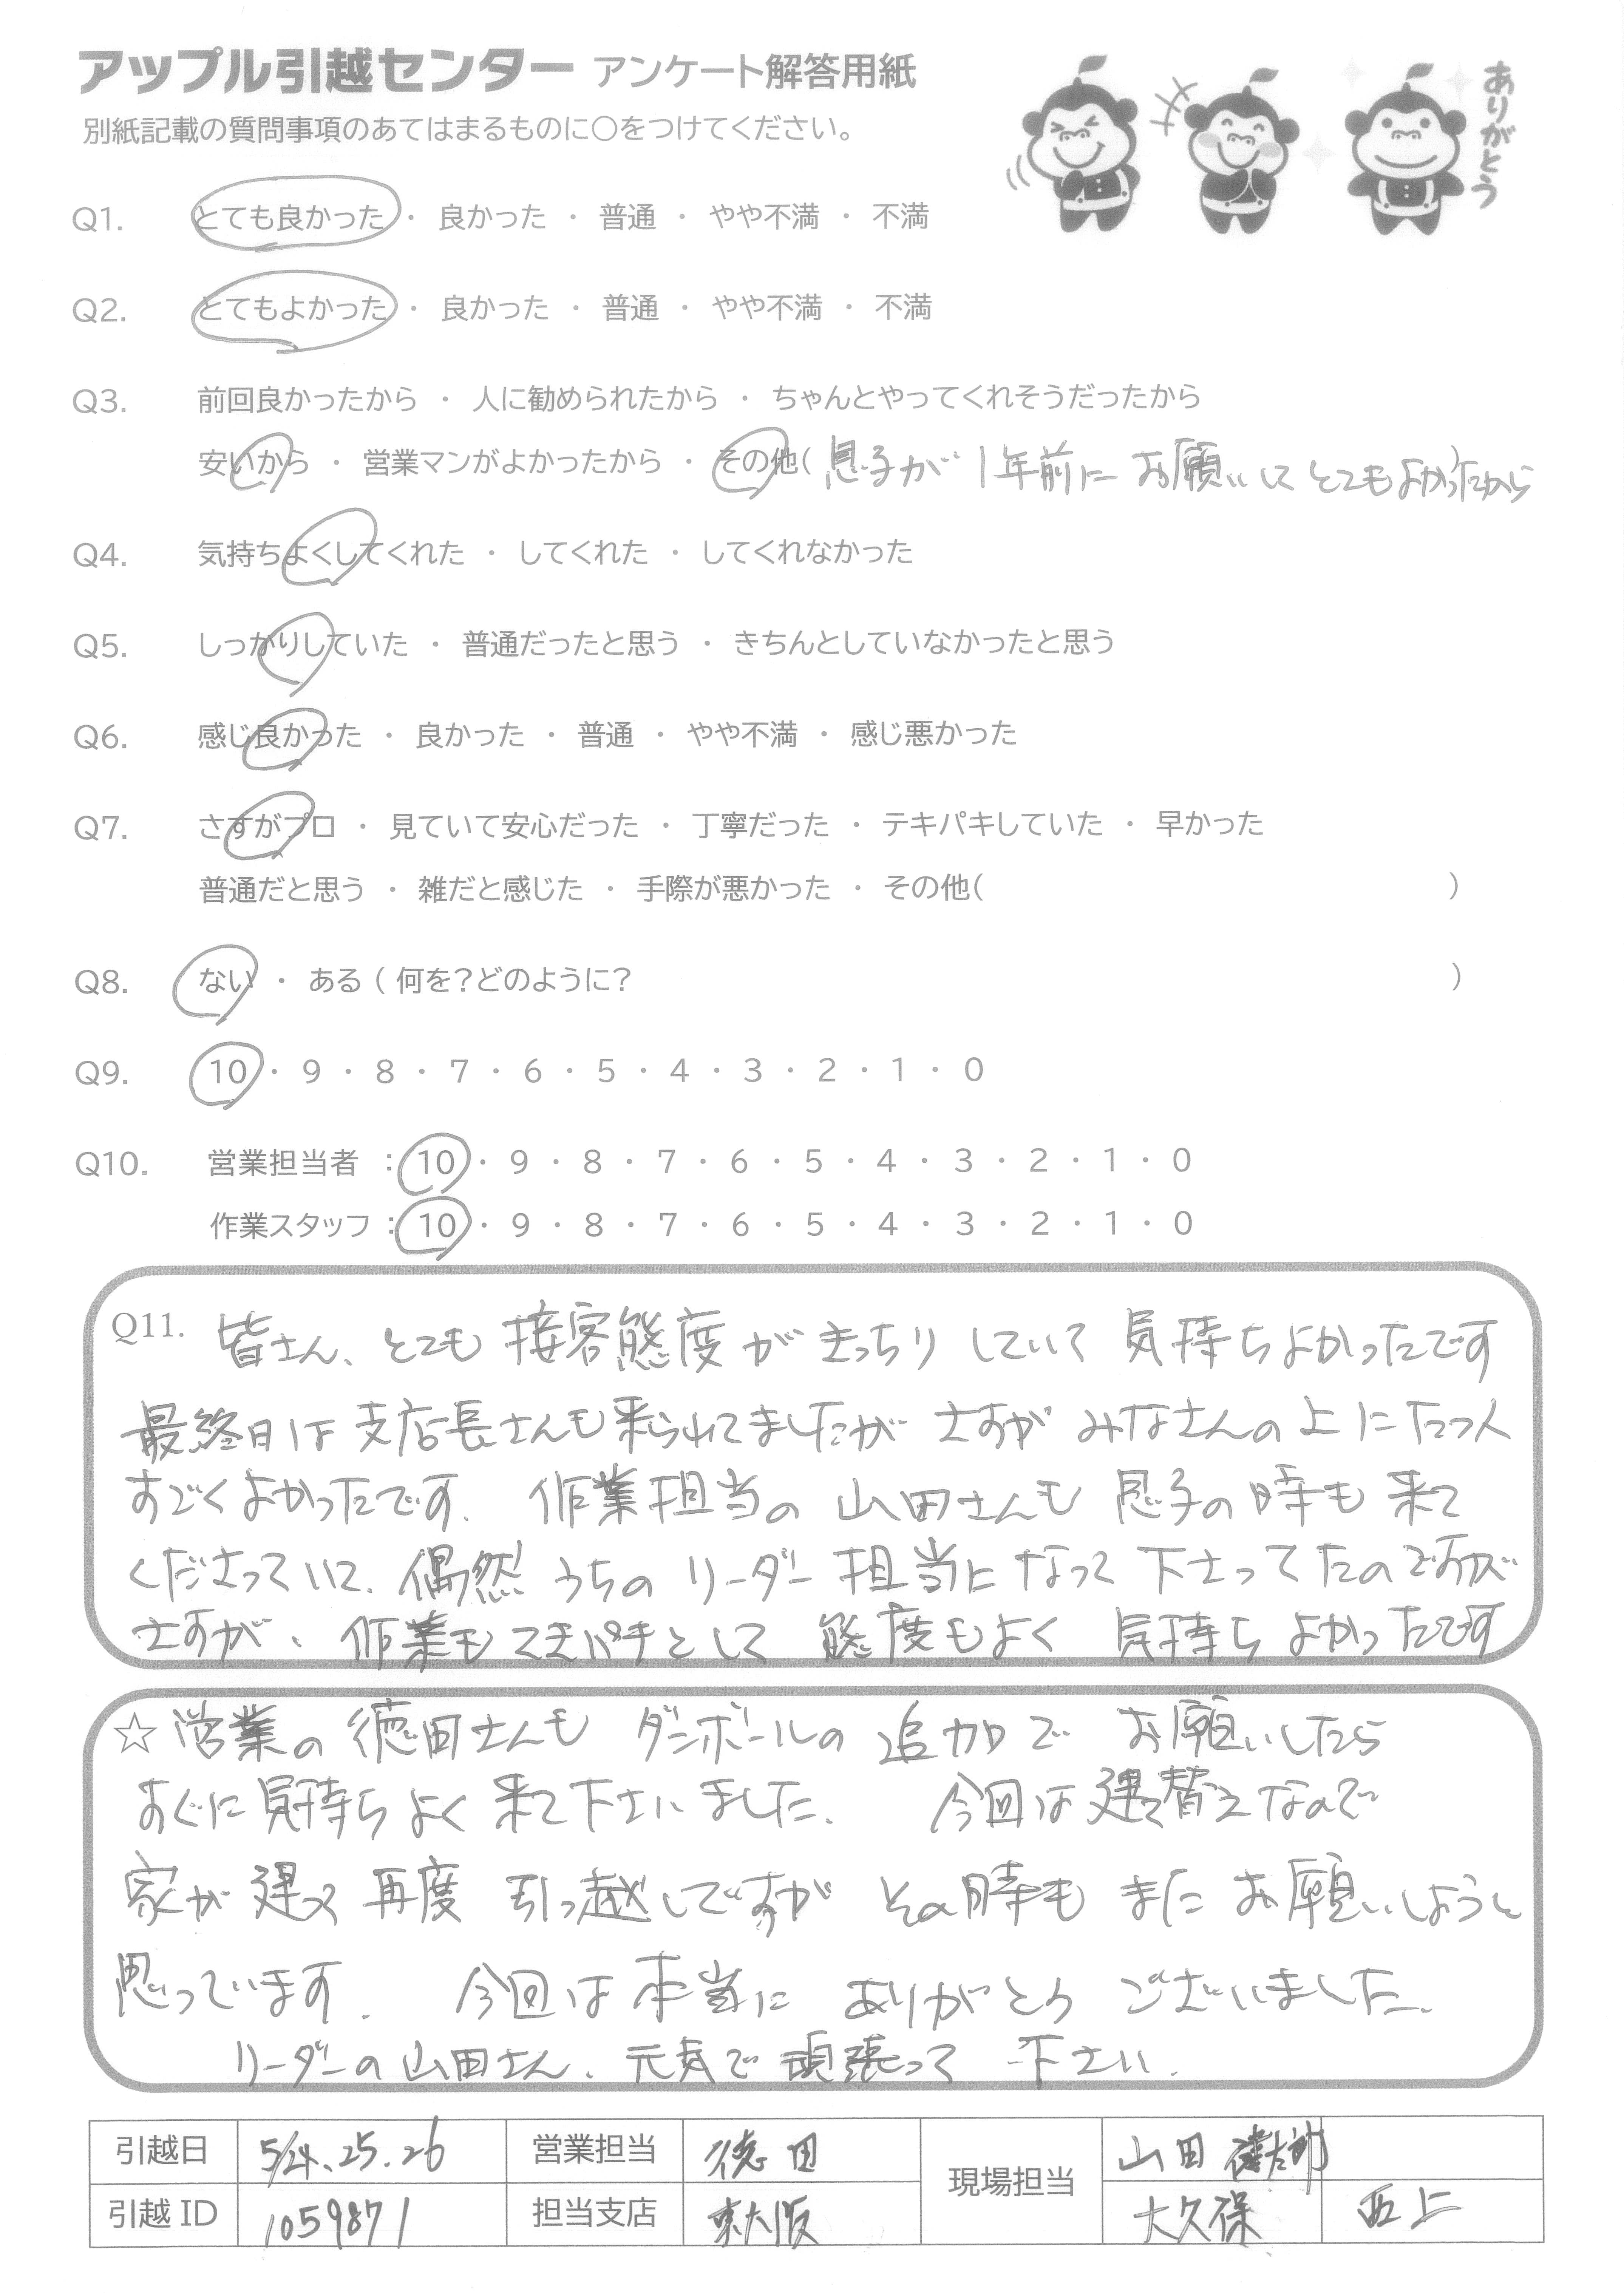 アップル引越センター アンケート解答用紙
ありがとう
別紙記載の質問事項のあてはまるものに○をつけてください。
Q1. とても良かった ・ 良かった ・ 普通 ・ やや不満 ・ 不満
Q2. とてもよかった ・ 良かった ・ 普通 ・ やや不満 ・ 不満
Q3. 前回良かったから ・ 人に勧められたから ・ ちゃんとやってくれそうだったから
安いから ・ 営業マンがよかったから ・ その他( 息子が 1年前に お願いして とてもよかったから )
Q4. 気持ちよくしてくれた ・ してくれた ・ してくれなかった
Q5. しっかりしていた ・ 普通だったと思う ・ きちんとしていなかったと思う
Q6. 感じ良かった ・ 良かった ・ 普通 ・ やや不満 ・ 感じ悪かった
Q7. さすがプロ ・ 見ていて安心だった ・ 丁寧だった ・ テキパキしていた ・ 早かった
普通だと思う ・ 雑だと感じた ・ 手際が悪かった ・ その他( )
Q8. ない ・ ある ( 何を?どのように? )
Q9. 10 ・ 9 ・ 8 ・ 7 ・ 6 ・ 5 ・ 4 ・ 3 ・ 2 ・ 1 ・ 0
Q10. 営業担当者 : 10 ・ 9 ・ 8 ・ 7 ・ 6 ・ 5 ・ 4 ・ 3 ・ 2 ・ 1 ・ 0
作業スタッフ : 10 ・ 9 ・ 8 ・ 7 ・ 6 ・ 5 ・ 4 ・ 3 ・ 2 ・ 1 ・ 0
Q11. 皆さん、とても 接客態度が きっちり していて 気持ちよかったです
最終日は 支店長さんも来られてましたが さすが みなさんの上に たつ人
すごくよかったです. 作業担当の 山田さんも 息子の時も 来て
くださっていて、偶然 うちの リーダー 担当に なって 下さってたのですが
さすが、作業も てきパキとして 態度もよく 気持ち よかったです
☆ 営業の 徳田さんも ダンボールの 追加で お願いしたら
すぐに気持ちよく 来て下さいました. 今回は 建て替えなので
家が 建って 再度 引っ越しですが その時も また お願いしようと
思っています. 今回は本当に ありがとう ございました.
リーダーの 山田さん、元気で 頑張って 下さい.
引越日 5/24、25.26 営業担当 徳田 現場担当 山田 健太郎
引越ID 1059871 担当支店 東大阪 大久保 西上